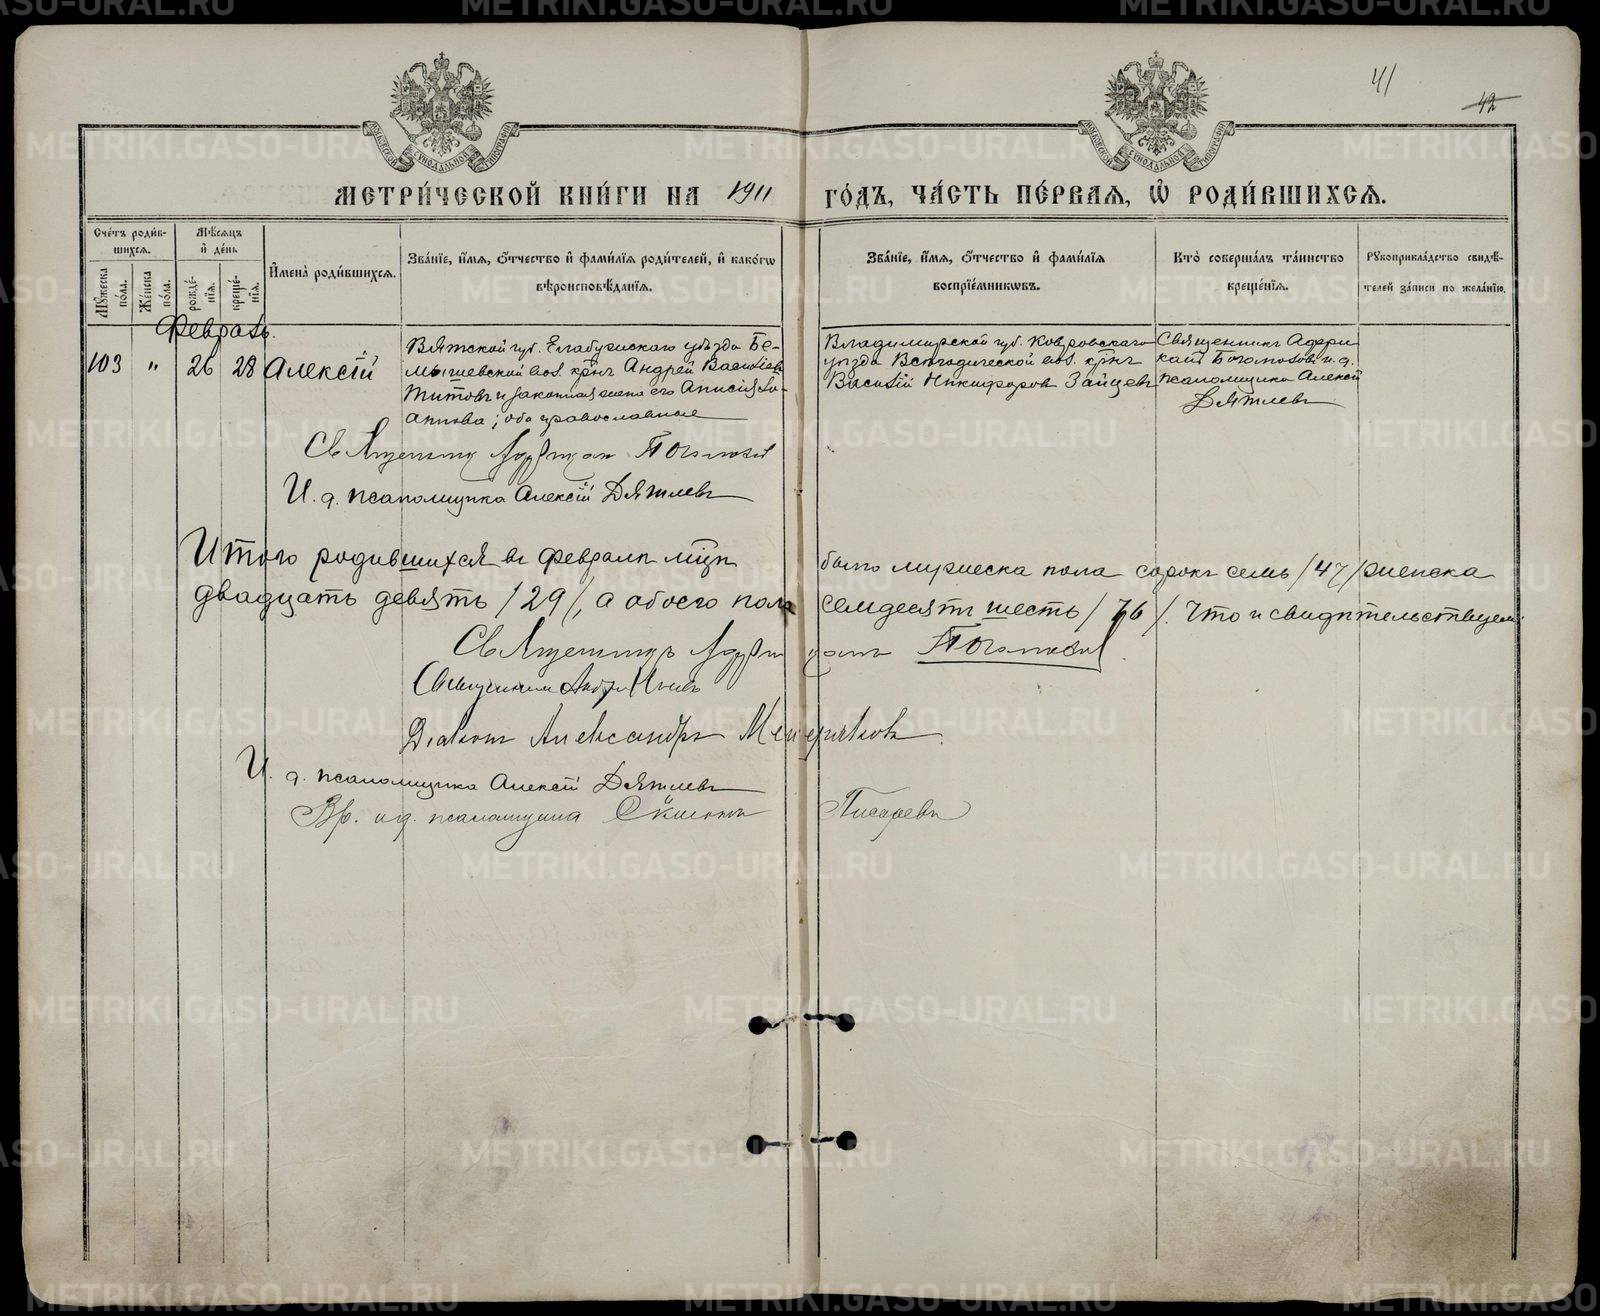 41
42
МЕТРИ́ЧЕСКОЙ КНИ́ГИ НА 1911 ГО́ДЪ, ЧА́СТЬ ПЕ́РВАЯ, Ѡ҆ РОДИ́ВШИХСЯ.
Сче́тъ роди́в-
шихся.
Мѣ́сяцъ
и҆ де́нь
Му́жеска
по́ла.
Же́нска
по́ла.
рожде́-
нїя.
креще́-
нїя.
И҆мена̀ роди́вшихся.
Зва́нїе, и҆́мя, ѻ҆́тчество и҆ фами́лїя роди́телей, и҆ како́гѡ
вѣроисповѣ́данїя.
Зва́нїе, и҆́мя, ѻ҆́тчество и҆ фами́лїя
воспрїе́мникѡвъ.
Кто̀ соверша́лъ та́инство
креще́нїя.
Рꙋкоприкла́дство свидѣ́-
телей за́писи по жела́нїю.
Февраль.
103 " 26 28 Алексій
Вятской губ. Елабужскаго уѣзда Бе-
мышевской вол. кр-нъ Андрей Васильевъ
Титовъ и законная жена его Анисія
оба православные
Владимирской губ. Ковровскаго
уѣзда Всегодической вол. кр-нъ
Василій Никифоровъ Зайцевъ
Священникъ Афри-
канъ Боголюбовъ и. д.
псаломщика Алексій
Дятлевъ
Священникъ Африкан Боголюбов
И. д. псаломщика Алексій Дятлевъ
Итого родившихся въ февралѣ м-цѣ было мужеска пола сорокъ семь /47/ женска
двадцать девять /29/, а обоего пола семдесятъ шесть /76/. Что и свидѣтельствуемъ:
Священникъ Африканъ Боголюбов
Священникъ
Діаконъ Александръ Мещеряковъ.
И. д. псаломщика Алексій Дятлевъ
Вр. и. д. псаломщика Писаревъ
METRIKI.GASO-URAL.RU